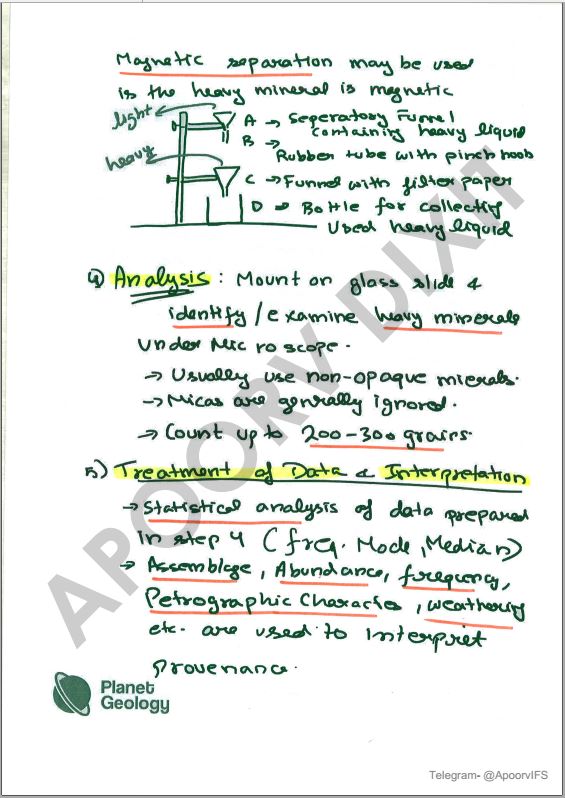 Magnetic separation may be used
is the heavy mineral is magnetic
light
A → Seperatory Funnel
containing heavy liquid
B →
Rubber tube with pinch
heavy
C → Funnel with filter paper
D → Bottle for collectig
Used heavy liquid
4) Analysis : Mount on glass slide &
identify / examine heavy minerals
under Microscope.
→ Usually use non-opaque mierals.
→ Micas are genrally ignored.
→ Count up to 200-300 grains.
5) Treatment of Data & Interpretation
→ Statistical analysis of data prepared
in step 4 (freq. Mode, Median)
→ Assemblage, Abundance, frequency,
Petrographic Character, weathering
etc. are used to interpret
provenance.
APOORV DIXIT
Planet
Geology
Telegram- @ApoorvIFS